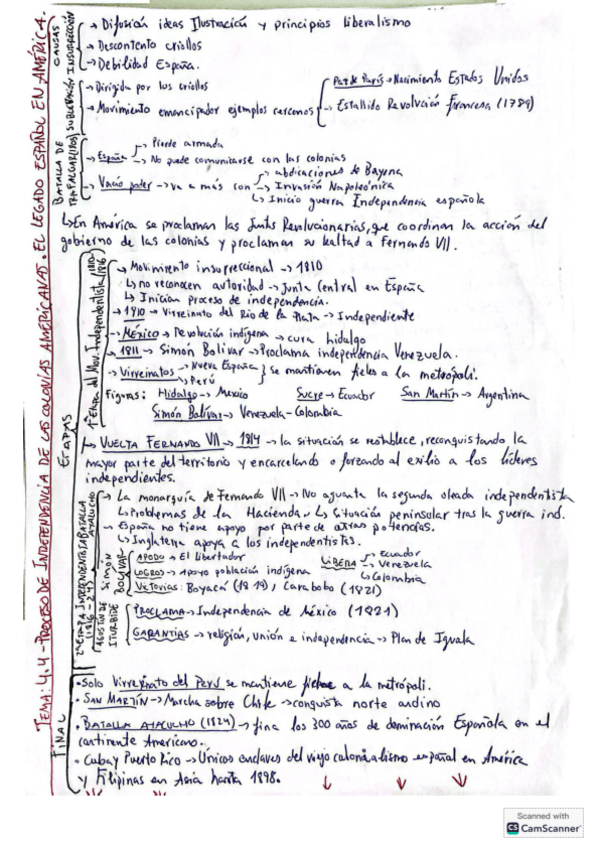 TEMA: 4.4 - PROCESO DE INDEPENDENCIA DE LAS COLONIAS AMERICANAS. EL LEGADO ESPAÑOL EN AMÉRICA.
CAUSAS INSURRECCIÓN
→ Difusión ideas Ilustración y principios liberalismo
→ Descontento criollos
→ Debilidad España.
SUBLEVACIÓN
→ Dirigida por los criollos
→ Movimiento emancipador ejemplos cercanos
Paz de París → Nacimiento Estados Unidos
→ Estallido Revolución francesa (1789)
BATALLA DE TRAFALGAR (1805)
→ España → Pierde armada
→ No puede comunicarse con las colonias
→ Vacío poder → va a más con → abdicaciones de Bayona
→ Invasión Napoleónica
↳ Inicio guerra Independencia española
↳ En América se proclaman las Junts Revolucionarias, que coordinan la acción del
gobierno de las colonias y proclaman su lealtad a Fernando VII.
ETAPAS
1ª Etapa del Mov. Independentista
→ Movimiento insurreccional → 1810
↳ no reconocen autoridad → Junta Central en España
↳ Inician proceso de independencia.
→ 1910 → Virreinato del Río de la Plata → Independiente
→ México → Revolución indígena → cura hidalgo
→ 1811 → Simón Bolívar → Proclama independencia Venezuela.
→ Virreinatos → Nueva España
→ Perú } se mantienen fieles a la metrópoli.
Figuras: Hidalgo → Mexico Sucre → Ecuador San Martín → Argentina
Simón Bolívar → Venezuela - Colombia
→ VUELTA FERNANDO VII → 1814 → la situación se restablece, reconquistando la
mayor parte del territorio y encarcelando o forzando al exilio a los líderes
independientes.
2ª ETAPA INDEPENDENTISTA BATALLA AYACUCHO (1816-24)
→ La monarquía de Fernando VII → No aguanta la segunda oleada independentista
↳ Problemas de la Hacienda ↳ Situación peninsular tras la guerra ind.
→ España no tiene apoyo por parte de otras potencias.
↳ Inglaterra apoya a los independentistas.
SIMÓN BOLÍVAR
APODO → El libertador
LOGROS → Apoyo población indígena
Victorias: Boyacá (1819), Carabobo (1821)
LIBERA → Ecuador
→ Venezuela
↳ Colombia
AGUSTÍN DE ITURBIDE
PROCLAMA → Independencia de México (1821)
GARANTÍAS → religión, unión e independencia → Plan de Iguala
FINAL
• Solo Virreinato del Perú se mantiene a la metrópoli.
• SAN MARTÍN → Marcha sobre Chile → conquista norte andino
• BATALLA AYACUCHO (1824) → fina los 300 años de dominación Española en el
continente Americano.
• Cuba y Puerto Rico → Únicos enclaves del viejo colonialismo español en América
y Filipinas en Asia hasta 1898.
Scanned with
CS CamScanner